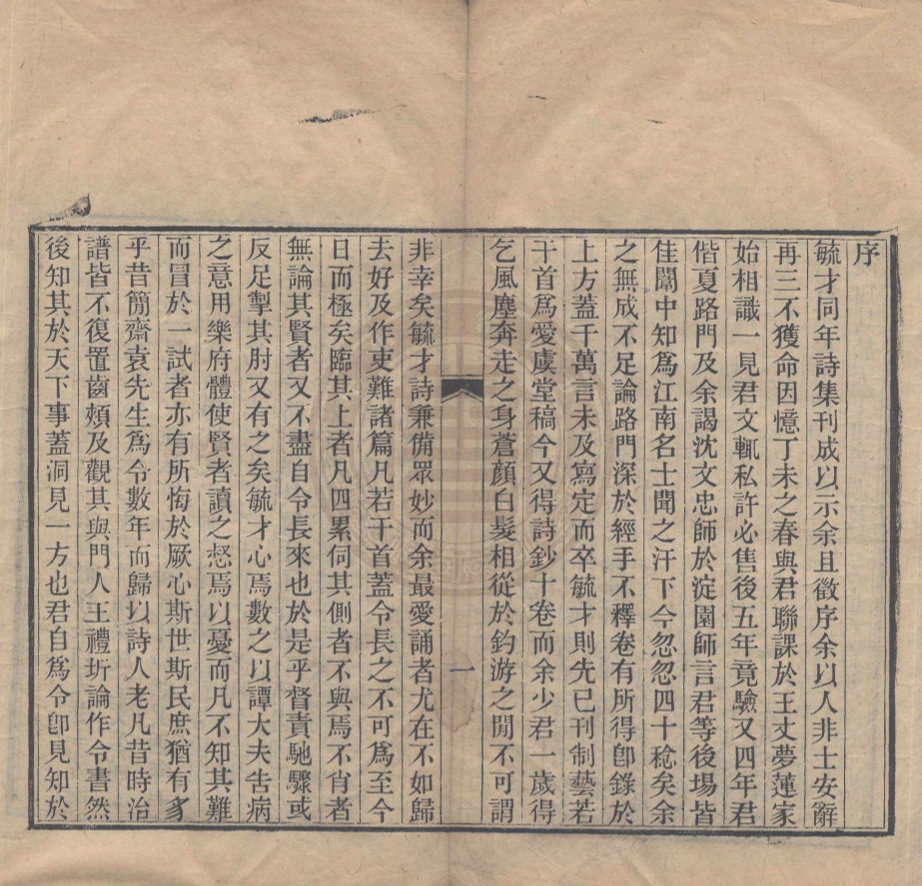 序
毓才同年詩集刊成以示余且徵序余以人非士安辭
再三不獲命因憶丁未之春與君聯課於王丈夢蓮家
始相識一見君文輒私許必售後五年竟驗又四年君
偕夏路門及余謁沈文忠師於淀園師言君等後場皆
佳闈中知爲江南名士聞之汗下今忽忽四十稔矣余
之無成不足論路門深於經手不釋卷有所得卽錄於
上方蓋千萬言未及寫定而卒毓才則先已刊制藝若
干首爲愛虞堂稿今又得詩鈔十卷而余少君一歲得
乞風塵奔走之身蒼顏白髮相從於釣游之閒不可謂
一
非幸矣毓才詩兼備眾妙而余最愛誦者尤在不如歸
去好及作吏難諸篇凡若干首蓋令長之不可爲至今
日而極矣臨其上者凡四累伺其側者不與焉不肖者
無論其賢者又不盡自令長來也於是乎督責馳驟或
反足掣其肘又有之矣毓才心焉數之以譚大夫告病
之意用樂府體使賢者讀之惄焉以憂而凡不知其難
而冒於一試者亦有所悔於厥心斯世斯民庶猶有豸
乎昔簡齋袁先生爲令數年而歸以詩人老凡昔時治
譜皆不復置齒頰及觀其與門人王禮圻論作令書然
後知其於天下事蓋洞見一方也君自爲令卽見知於